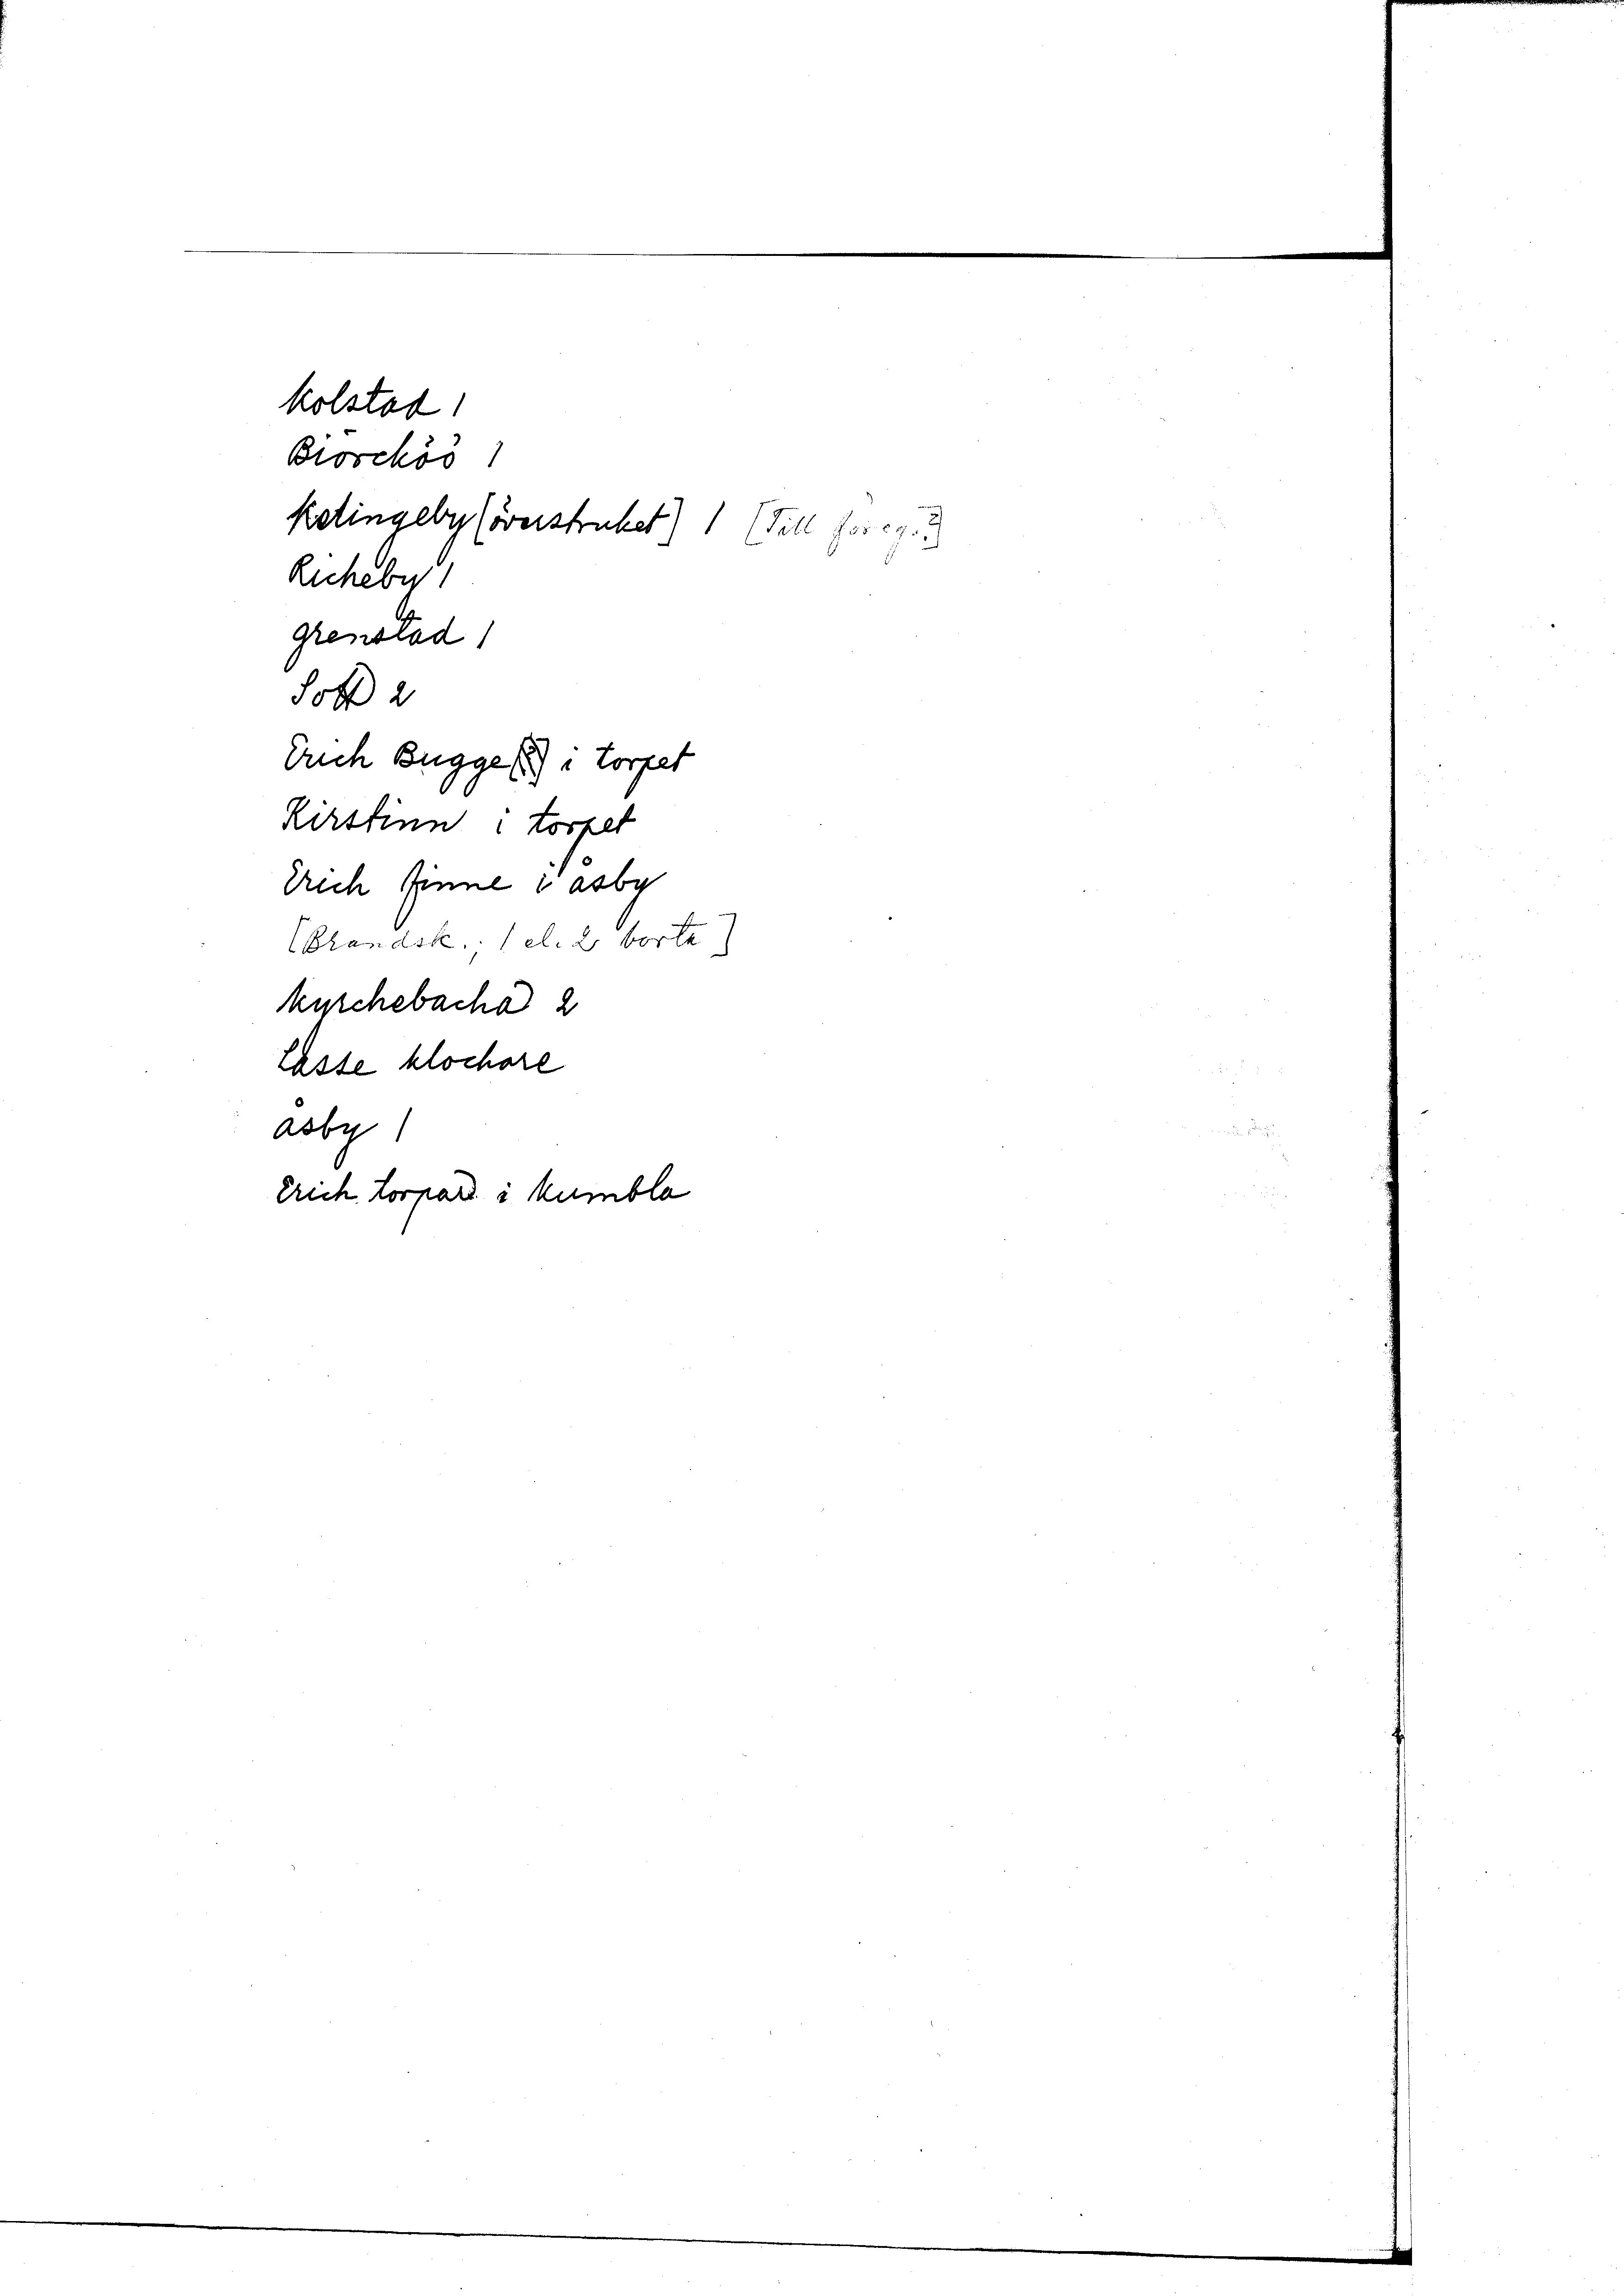 kolstad 1
Biörchöö 1
ketingeby (överstruket) 1 [Till föreg.?]
Richeby 1
grenstad 1
Sott 2
Erich Bugge(?) i torpet
Kirstinn i torpet
Erich finne i åsby
[Brandsk.; 1 el. 2 borta]
kyrchebacha 2
Lasse klochare
åsby 1
Erich torpare i kumbla